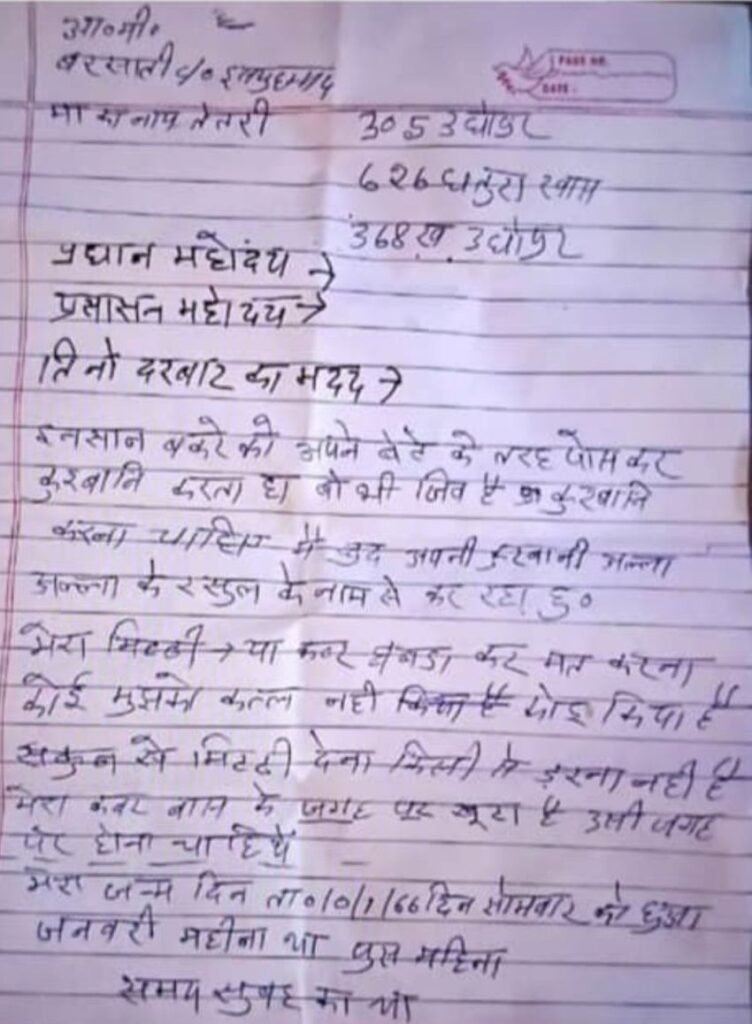 बरसाती c/o
मा का नाम तेतरी
PAGE NO.
DATE:
305 उद्योपुर
626 धतुरा खास
368 ख. उद्योपुर
प्रधान महोदय →
प्रसासन महोदय →
तिनो दरबार का मदद →
इनसान बकरे को अपने बेटे के तरह पोस कर
कुरबानि करता है। वो भी जिव है कुरबानि
करना चाहिए मै खुद अपनी कुरबानी अल्ला
अल्ला के रसुल के नाम से कर रहा हु०
मेरा मिटटी → या कबर घबडा कर मत करना
कोई मुझको कत्ल नही किया है
सकुन से मिटटी देना किसी से डरना नही है
मेरा कबर बास के जगह पर खूटा है उसी जगह
पर होना चाहिये
मेरा जन्म दिन ता०/0/1/66 दिन सोमवार को हुआ
जनवरी महीना था पुस महिना
समय सुबह का था